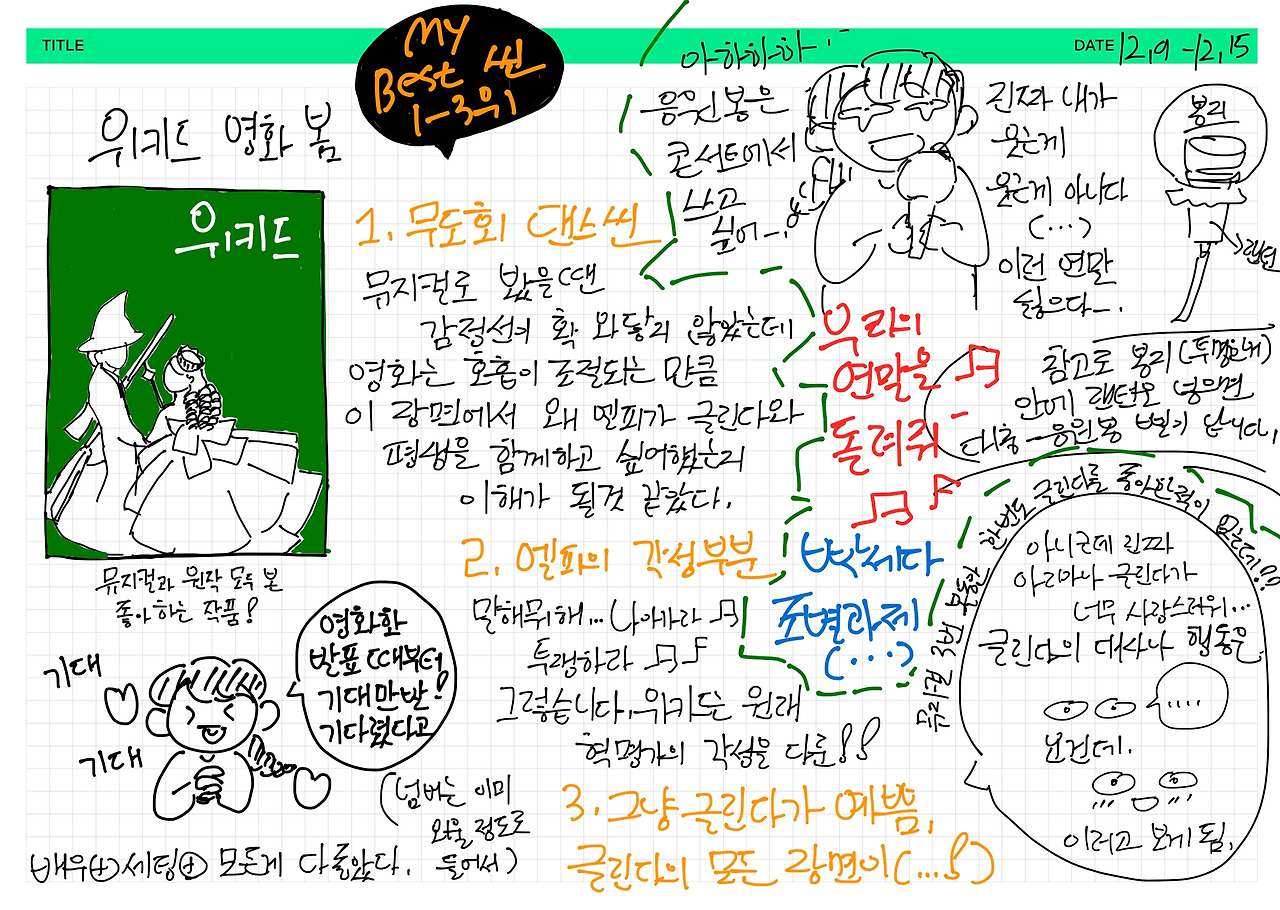 TITLE
DATE 12,9 -12,15
My
Best 씬
1-3위
위키드 영화 봄
위키드
뮤지컬과 원작 모두 본
좋아하는 작품!
기대
기대
영화화
발표때부터
기대만발!
기다렸다고
(넘버는 이미
외울정도로
들어서)
배우⊕세팅⊕ 모든게 다 좋았다.
1. 무도회 댄스씬
뮤지컬로 봤을땐
감정선의 확 와닿지 않았는데
영화는 호흡이 조절되는 만큼
이 장면에서 왜 엘피가 글린다와
평생을 함께하고 싶어했는지
이해가 될것 같았다.
2. 엘피의 각성부분
말해뭐해... 나아가라
투쟁하라
그렇습니다. 위키드는 원래
혁명가의 각성을 다룬!!
3. 그냥 글린다가 예쁨.
글린다의 모든 장면이(...!)
아하하하..-
응원봉은
콘서트에서
쓰고
싶어-.
진짜 내가
웃는게
웃는게 아니다
(...)
이런 연말
싫으다-.
봉리
랜턴
참고로 봉리(투명한게)
안에 랜턴을 넣으면
대충 응원봉 별이 납니다.
우리의
연말을
돌려줘-
빡세다
조별과제
(...)
뮤지컬 3번 보는동안
한번도 글린다를 좋아한적이 없는데!!
아니근데 진짜
아리아나 글린다가
너무 사랑스러워...
글린다의 대사나 행동은
.....
보건데.
이러고 보게 됨.